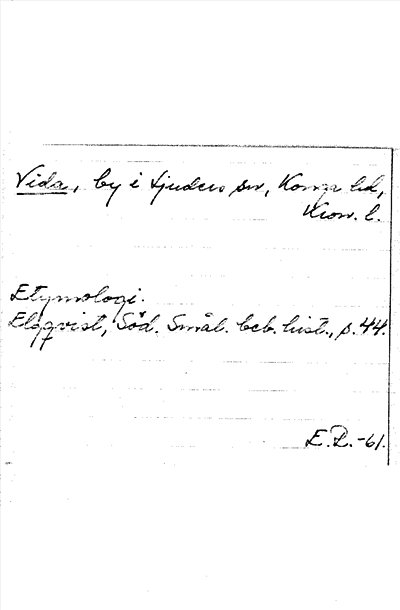 Vida, by i Tjuders sn, Konga hd,
Kron. l.
Etymologi.
Elqvist, Söd. Smål. beb. hist., s. 44.
E.P. -61.